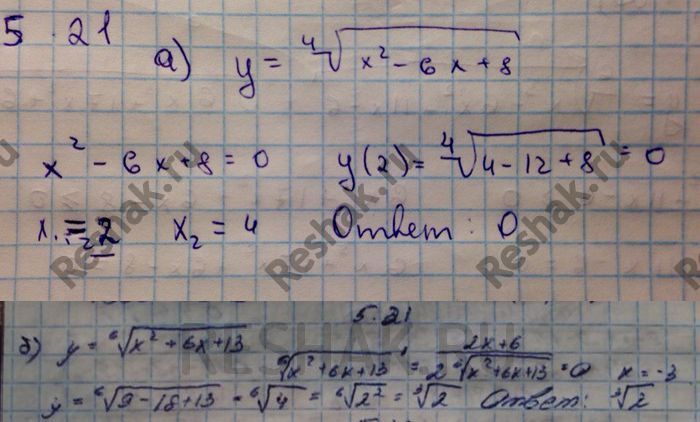 5.21
а) y = ⁴√(x² - 6x + 8)
x² - 6x + 8 = 0 y(2) = ⁴√(4 - 12 + 8) = 0
x₁ = 2 x₂ = 4 Ответ: 0
5.21
б) y = ⁶√(x² + 6x + 13)
⁶√(x² + 6x + 13)' = (2x + 6)/(2 ⁶√(x² + 6x + 13)) = 0 x = -3
y = ⁶√(9 - 18 + 13) = ⁶√4 = ⁶√2² = ³√2 Ответ: ³√2
Reshak.ru
RESHAK.RU